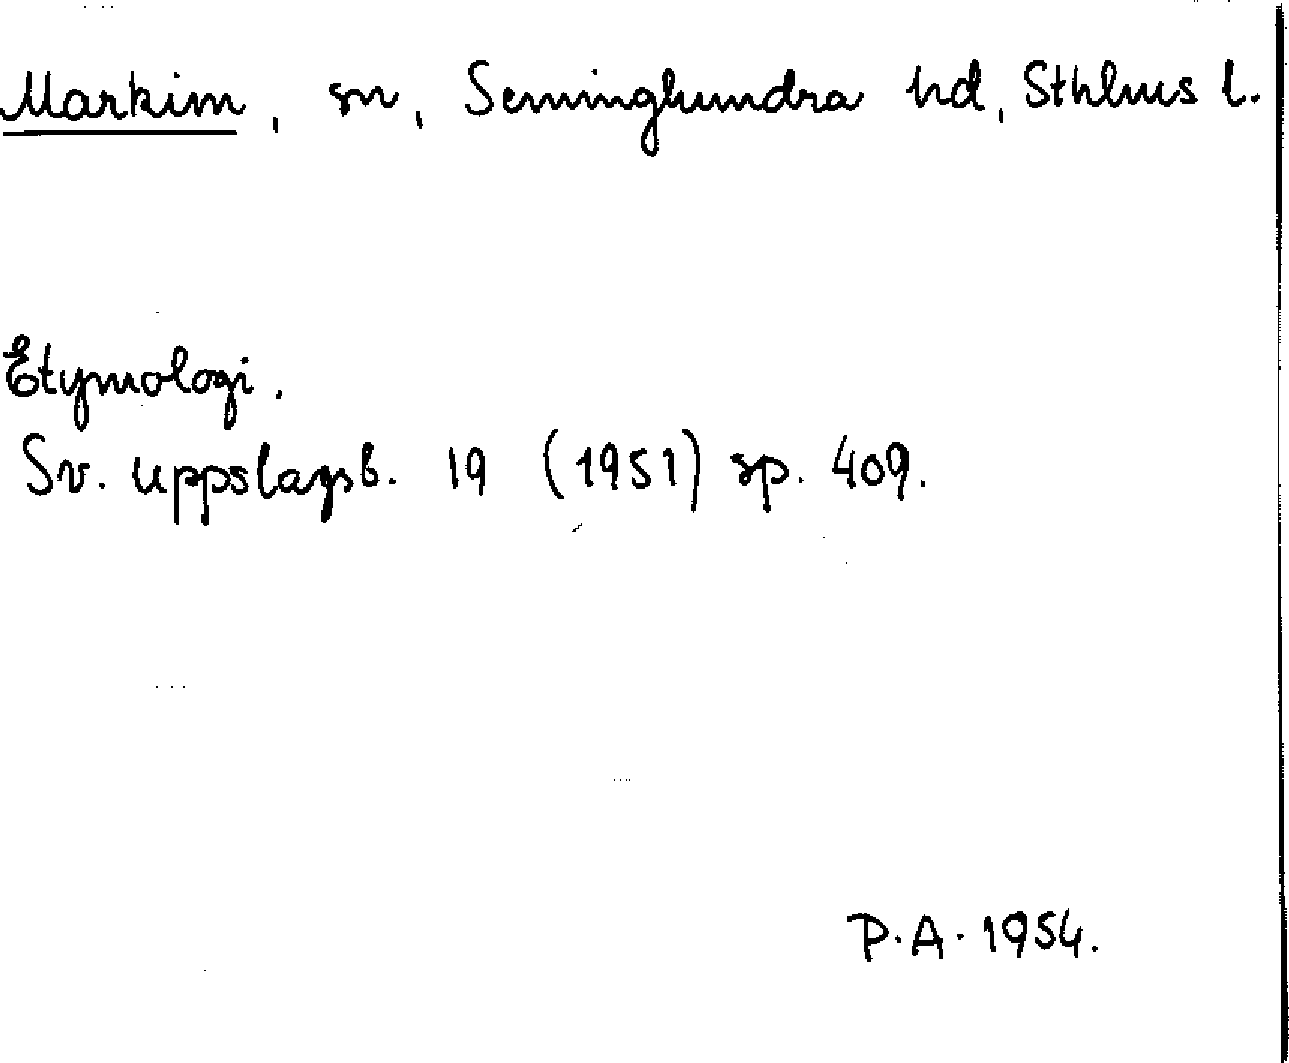 Markim, sn, Seminghundra hd, Sthlms l.
Etymologi.
Sv. uppslagsb. 19 (1951) sp. 409.
P.A. 1954.